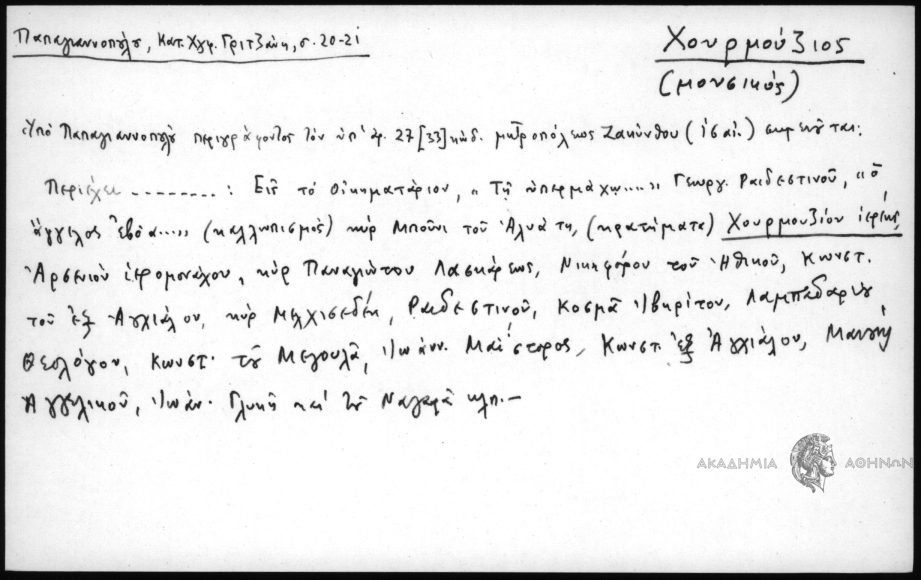 Παπαγιαννοπούλου, Κατ. Χγφ. Γριτζάνη, σ. 20-21
Χουρμούζιος
(μουσικός)
Ὑπό Παπαγιαννοπούλου περιγράφοντος τόν ὑπ' ἀρ. 27 [33] κώδ. μητροπόλεως Ζακύνθου ( ) σημειοῦται:
Περιέχει - - - - - - - - : Εἰς τό Οἰκηματάριον, "Τῇ ὑπερμάχῳ..." Γεωργ. Ραιδεστινοῦ, "ὁ
ἄγγελος ἐβόα..." (καλλωπισμός) κύρ Μπούνι τοῦ Ἀλυάτη, (κρατήματα) Χουρμουζίου ἱερέως,
Ἀρσενίου ἱερομονάχου, κύρ Παναγιώτου Λασκάρεως, Νικηφόρου τοῦ Ἠθικοῦ, Κωνστ.
τοῦ ἐξ Ἀγχιάλου, κύρ Μελχισεδέκ, Ραιδεστινοῦ, Κοσμᾶ Ἰβηρίτου, Λαμπαδαρίου
Θεολόγου, Κωνστ. τοῦ Μεγουλᾶ, Ἰωάνν. Μαΐστορος, Κωνστ. ἐξ Ἀγχιάλου, Μανουὴλ
Ἀγγελικοῦ, Ἰωάν. Γλυκῆ καί τοῦ Ναγαρᾶ κλπ.-
ΑΚΑΔΗΜΙΑ ΑΘΗΝΩΝ